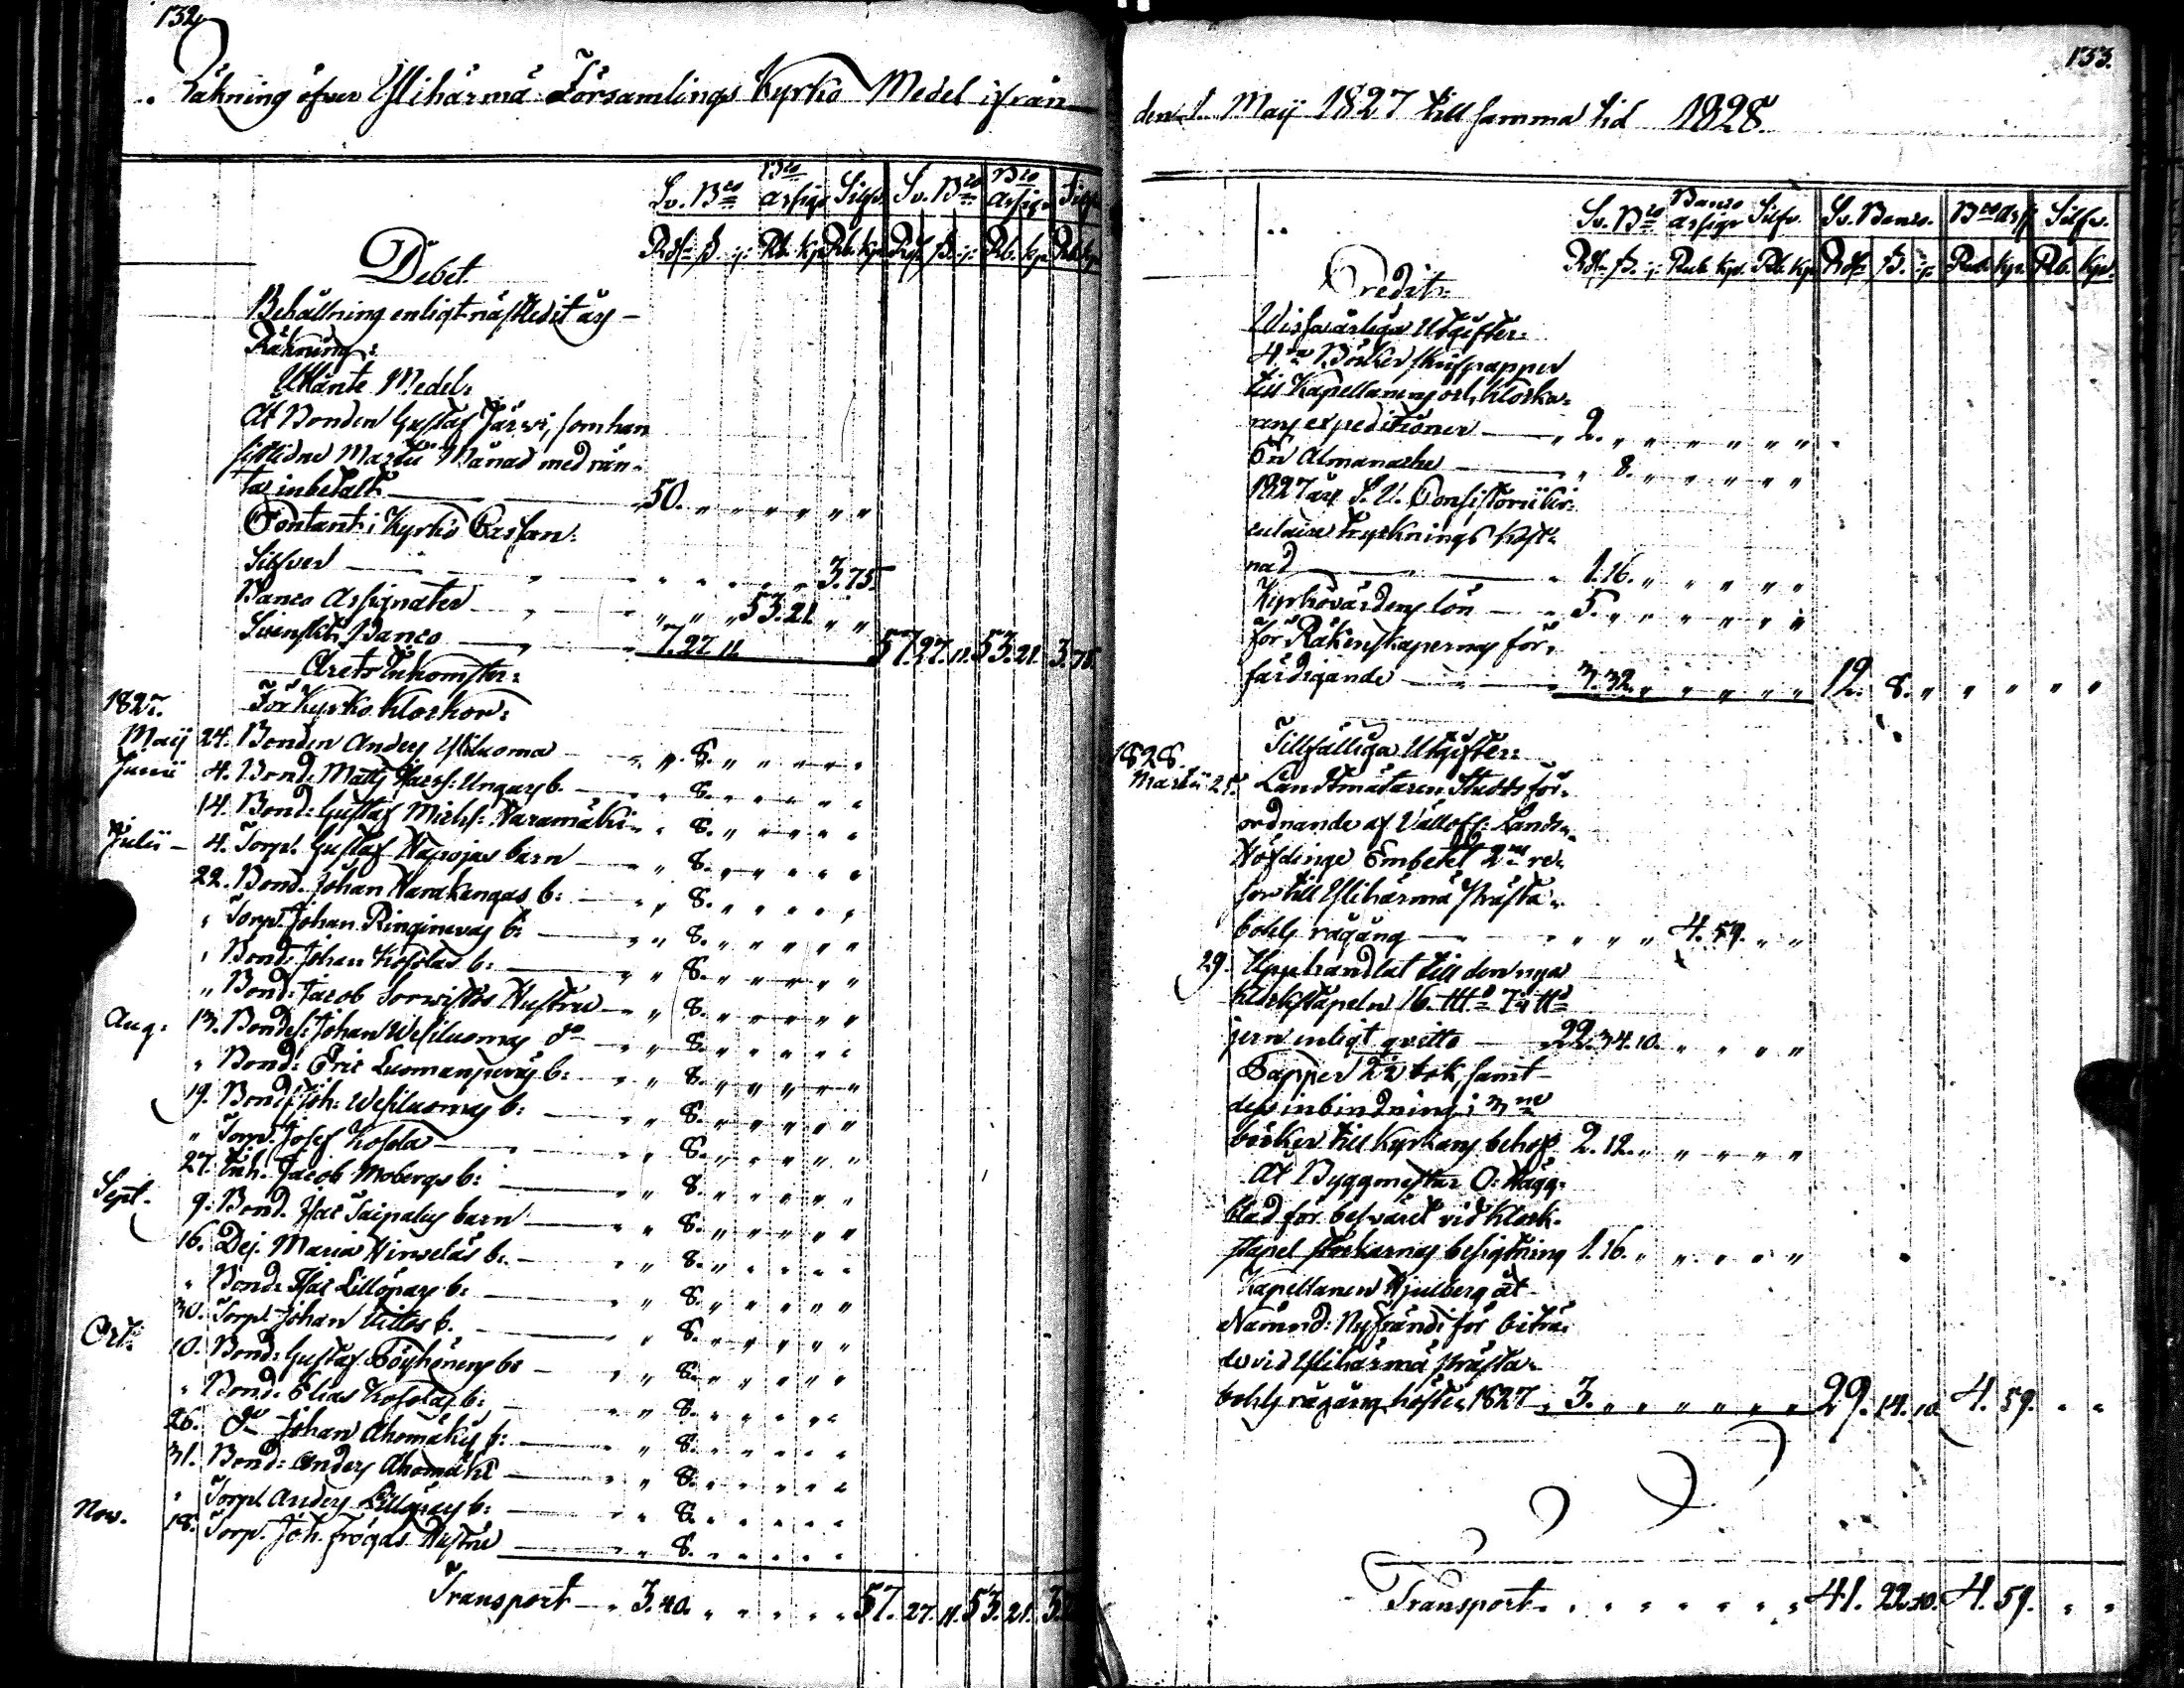 132
Räkning öfver Ylihärmä Församlings Kyrko Medel ifrån
Sv. Bco Bco Assign Silfv. Sv. Bco Bco Assig. Silfv.
Rdr ß. rst. Rb. kp. Rb. kp. Rdr ß. rst. Rb. kp. Rb. kp.
Debet.
Behållning enligt nästledit års
Räkning:
Utlänte Medel:
At Bonden Gustaf Järvi, som han
sistledne Martii Månad med rän-
ta inbetalt 50. " " " " " "
Contant i Kyrko Cassan:
Silfver " " " " " 3. 75.
Banco Assignater " " " 53. 21. " "
Svenskt Banco 7. 27. 11. 57. 27. 11. 53. 21. 3. 75.
Årets Inkomster:
1827. För Kyrko Klockor:
Maij 24. Bonden Anders Yliluoma " 8. " " " " "
Junii 4. Bond. Matts Hans: Ungars b. " 8. " " " " "
14. Bond: Gustaf Michs: Naramäki " 8. " " " " "
Julii 4. Torp. Gustaf Haps­ojas barn " 8. " " " " "
22. Bond. Johan Harakangas b: " 8. " " " " "
" Torp. Johan Ringinevas b: " 8. " " " " "
" Bond: Johan Kosolas b: " 8. " " " " "
" Bond: Jacob Sorvistos Hustru " 8. " " " " "
Aug: 13. Bondes: Johan Wesiluomas do " 8. " " " " "
" Bond: Eric Luomanperäs b: " 8. " " " " "
19. Bond: Joh: Wesiluomas b: " 8. " " " " "
" Torp. Josef Kosola " 8. " " " " "
27. Inh. Jacob Mobergs b: " 8. " " " " "
Sept. 9. Bond. Isac Taipalus barn " 8. " " " " "
16. Dej. Maria Hirvelas b: " 8. " " " " "
" Bond: Isac Lillöpars b: " 8. " " " " "
30. Torp. Johan Uittos b. " 8. " " " " "
Oct: 10. Bond: Gustaf Pöyhönens b: " 8. " " " " "
" Bond: Elias Kosolas b: " 8. " " " " "
26. do Johan Ahomäkis b: " 8. " " " " "
31. Bond: Anders Ahomäki " 8. " " " " "
" Torp. Anders Lillöpars b: " 8. " " " " "
Nov. 18. Torp. Joh. Frögås Hustru " 8. " " " " "
Transport 3. 40. " " " " " 57. 27. 11. 53. 21. 3.
133.
den 1. Maij 1827 till samma tid 1828.
Sv. Bco Banco Assign Silfv. Sv. Banco. Bco Ass Silfv.
Rdr ß. rst. Rub. kp. Rb. kp. Rdr ß. rst. Rub. kp. Rb. kp.
Credit:
Wissa årliga Utgifter:
4ra Böcker skrifpapper
till Kapellanens och Klocka-
rens expeditioner " 2. " " " " " "
En Almanacka " 8. " " " " "
1827 års S. V. Consistorii Cir-
culaire trycknings kost-
nad 1. 16. " " " " "
Kyrkovärdens lön 5. " " " " " "
för Räkenskapernas för-
färdigande 3. 32. " " " " " 12. 8. " " " " "
1828. Tillfälliga Utgifter:
Martii 25. Landtmätaren Studds för-
ordnande af Vällofl: Lands-
Höfdinge Embetet 2ne re-
sor till Ylihärmä Prästa-
bohls rågång " " " 4. 59. " "
29. Upphandlat till den nya
klockstapeln 16. ℔ 7½ ℔
jern enligt qvitto 22. 34. 10. " " " "
Papper 2½ bok, samt
dess inbindning i 3ne
böcker till kyrkans behof 2. 12. " " " " "
At Byggmästar O: Hägg-
blad för besväret vid klock-
stapel stockarnas besigtning 1. 16. " " " " "
Kapellanen Hjulberg åt
Nämnd: Nyfränd: för biträ-
de vid Ylihärmä Prästa-
bohls rågång hösten 1827 3. " " " " " " 29. 14. 10. 4. 59. " "
Transport " " " " " " " 41. 22. 10. 4. 59. " "